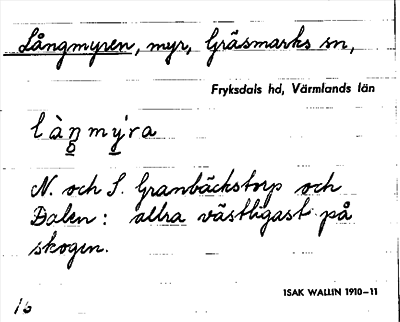 Långmyren, myr, Gräsmarks sn,
Fryksdals hd, Värmlands län
làŋmy̌ra
N. och S. Granbäckstorp och
Dalen: allra västligast på
skogen.
ISAK WALLIN 1910–11
16